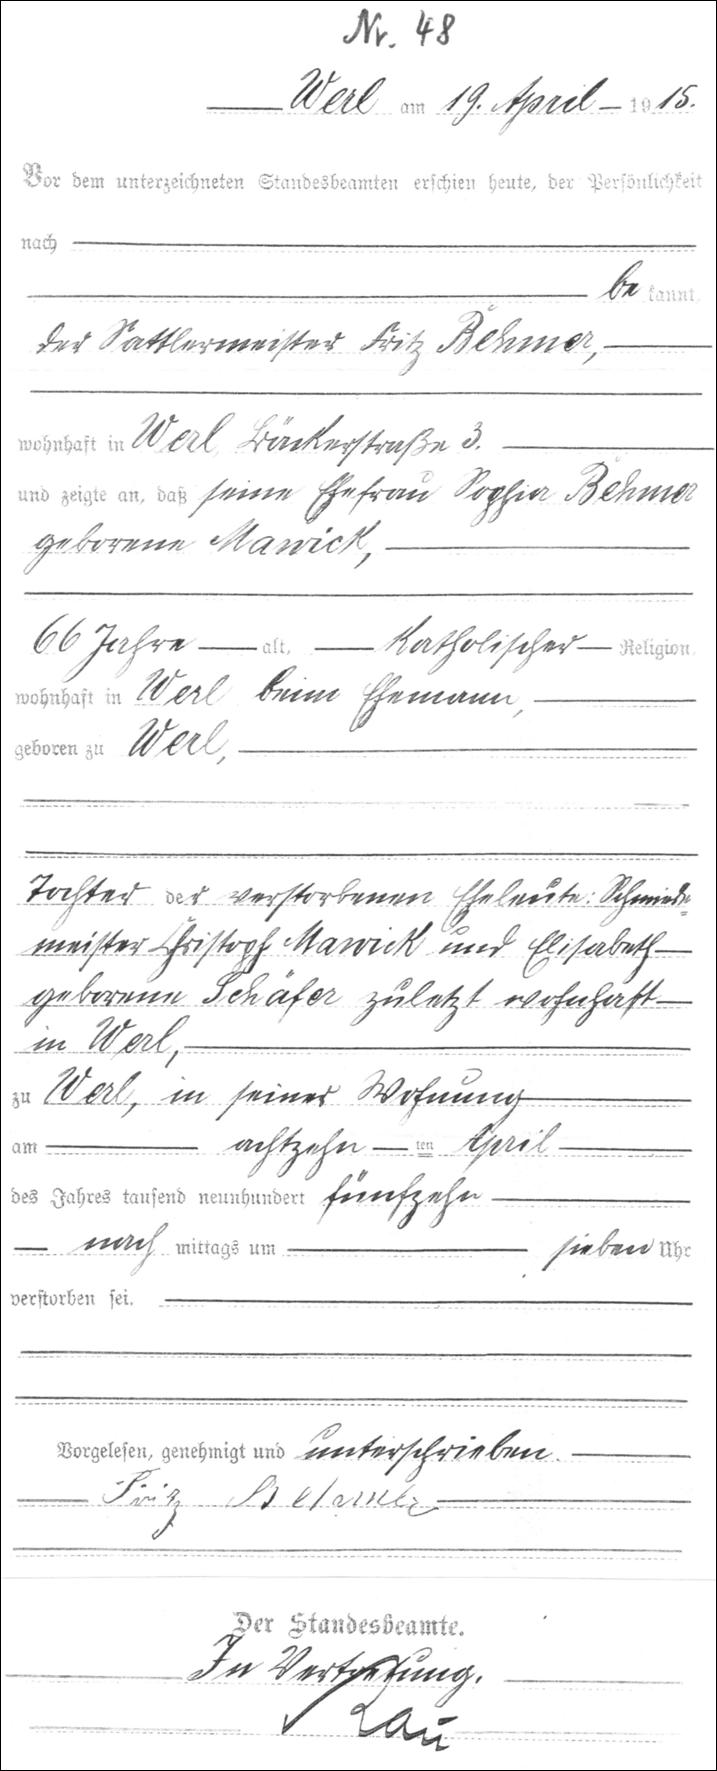 Nr. 48
Werl am 19. April 1915.
Vor dem unterzeichneten Standesbeamten erschien heute, der Persönlichkeit
nach
bekannt,
der Sattlermeister Fritz Behmer,
wohnhaft in Werl, Bäckerstraße 3.
und zeigte an, daß seine Ehefrau Sophia Behmer
geborene Mawick,
66 Jahre alt, Katholischer Religion,
wohnhaft in Werl beim Ehemann,
geboren zu Werl,
Tochter der verstorbenen Eheleute: Schmiede-
meister Christoph Mawick und Elisabeth
geborene Schäfer zuletzt wohnhaft
in Werl,
zu Werl, in seiner Wohnung
am achtzehn ten April
des Jahres tausend neunhundert fünfzehn
nach mittags um sieben Uhr
verstorben sei.
Vorgelesen, genehmigt und unterschrieben.
Fritz Behmer
Der Standesbeamte.
In Vertretung.
Lau